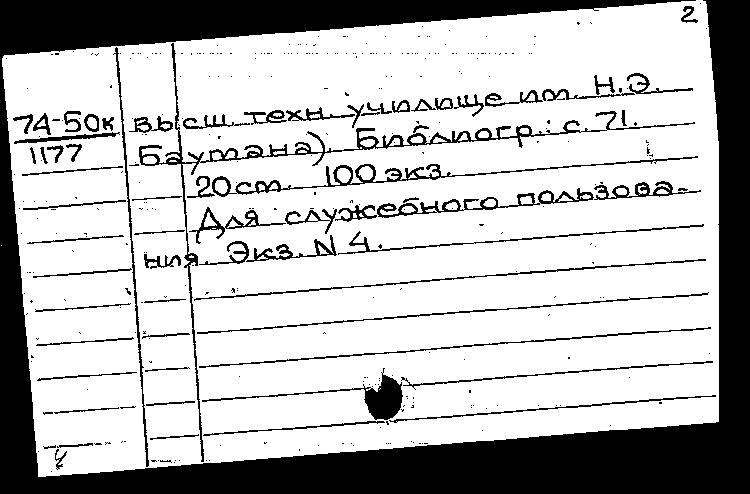 2
74-50к высш. техн. училище им. Н.Э.
1177 Баумана). Библиогр.: с. 71.
20см. 100 экз.
Для служебного пользова-
ния. Экз. N 4.